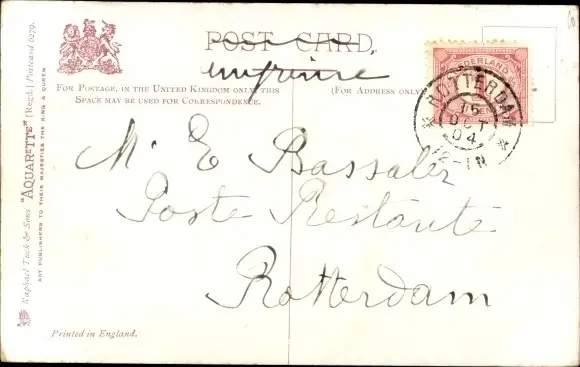 POST CARD.
imprimé
FOR POSTAGE, IN THE UNITED KINGDOM ONLY, THIS
SPACE MAY BE USED FOR CORRESPONDENCE.
(FOR ADDRESS ONLY
NEDERLAND
ROTTERDAM
15
OCT
04
12-1N
M. E Bassaler
Poste Restante
Rotterdam
Raphael Tuck & Sons' "AQUARETTE" [Regd.] Postcard 1079.
ART PUBLISHERS TO THEIR MAJESTIES THE KING & QUEEN
Printed in England.